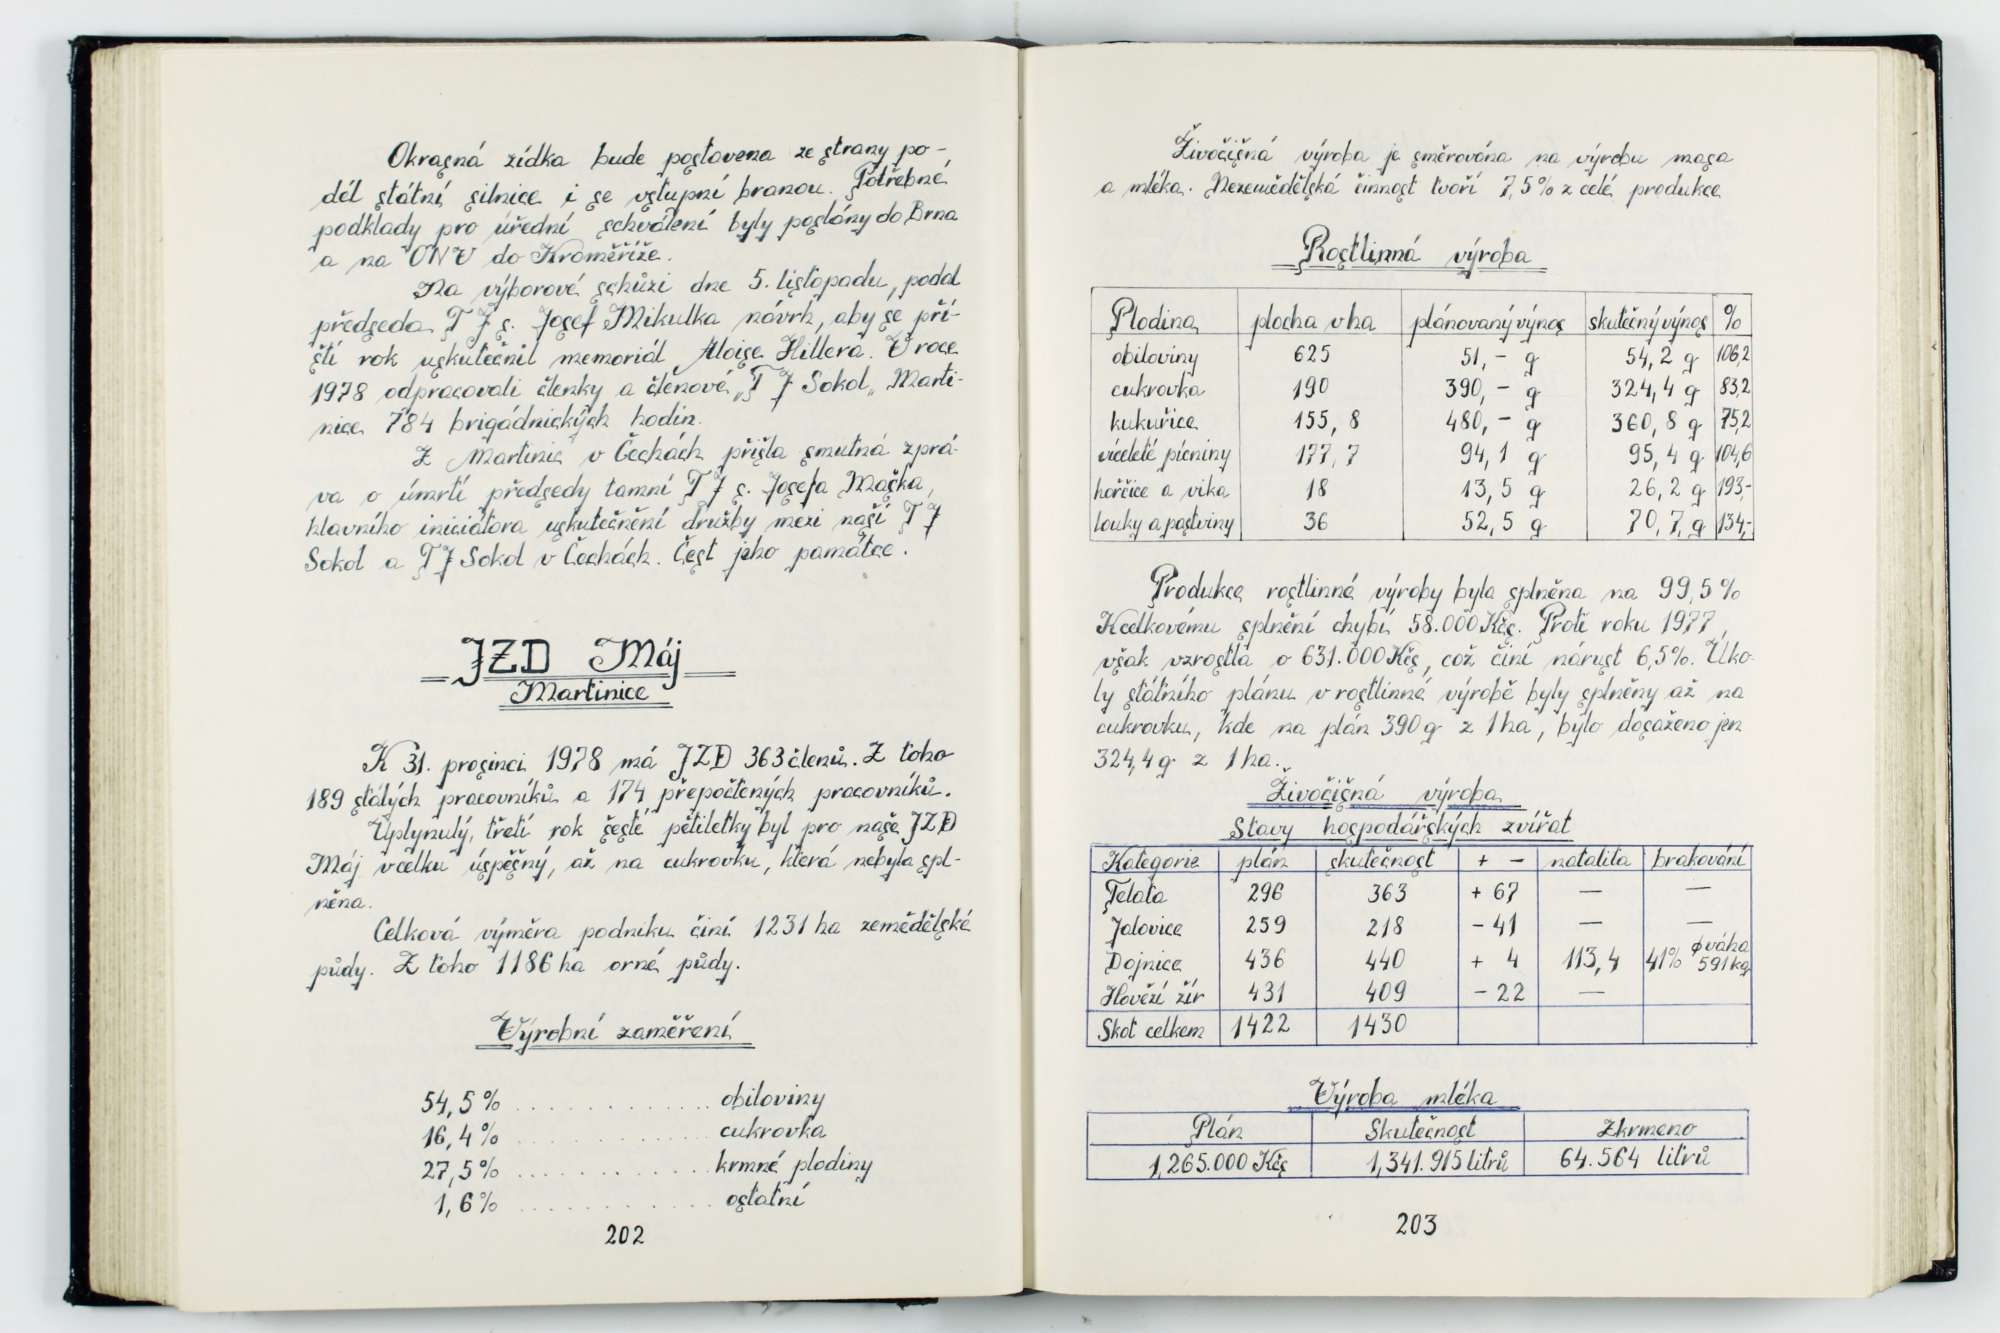 Okrasná zídka bude postavena ze strany po-
dél státní silnice i se vstupní branou. Potřebné
podklady pro úřední schválení byly poslány do Brna
a na ONV do Kroměříže.
Na výborové schůzi dne 5. listopadu, podal
předseda T J s. Josef Mikulka návrh, aby se pří-
ští rok uskutečnil memoriál Aloise Hillera. V roce
1978 odpracovali členky a členové „T J Sokol„ Marti-
nice 784 brigádnických hodin.
Z Martinic v Čechách přišla smutná zprá-
va o úmrtí předsedy tamní T J s. Josefa Mačka,
hlavního iniciátora uskutečnění družby mezi naší T J
Sokol a T J Sokol v Čechách. Čest jeho památce.
JZD Máj
Martinice
K 31. prosinci 1978 má JZD 363 členů. Z toho
189 stálých pracovníků a 174 přepočtených pracovníků.
Uplynulý, třetí rok šesté pětiletky byl pro naše JZD
Máj vcelku úspěšný, až na cukrovku, která nebyla spl-
něna.
Celková výměra podniku činí 1231 ha zemědělské
půdy. Z toho 1186 ha orné půdy.
Výrobní zaměření
54,5% ............. obiloviny
16,4% ............. cukrovka
27,5% ............. krmné plodiny
1,6% ............. ostatní
202
Živočišná výroba je směrována na výrobu masa
a mléka. Nezemědělská činnost tvoří 7,5% z celé produkce
Rostlinná výroba
Plodina plocha v ha plánovaný výnos skutečný výnos %
obiloviny 625 51,- q 54,2 q 106,2
cukrovka 190 390,- q 324,4 q 83,2
kukuřice 155,8 480,- q 360,8 q 75,2
víceleté pícniny 177,7 94,1 q 95,4 q 104,6
hořčice a vika 18 13,5 q 26,2 q 193,-
louky a pastviny 36 52,5 q 70,7 q 134,-
Produkce rostlinné výroby byla splněna na 99,5%
K celkovému splnění chybí 58.000 Kčs. Proti roku 1977,
však vzrostla o 631.000 Kčs, což činí nárust 6,5%. Úko-
ly státního plánu v rostlinné výrobě byly splněny až na
cukrovku, kde na plán 390 q z 1 ha, bylo dosaženo jen
324,4 q z 1 ha.
Živočišná výroba
Stavy hospodářských zvířat
Kategorie plán skutečnost + - natalita brakování
Telata 296 363 + 67 — —
Jalovice 259 218 - 41 — —
Dojnice 436 440 + 4 113,4 41% ϕ váha 591 kg
Hovězí žír 431 409 - 22 —
Skot celkem 1422 1430
Výroba mléka
Plán Skutečnost Zkrmeno
1,265.000 Kčs 1,341.915 litrů 64.564 litrů
203